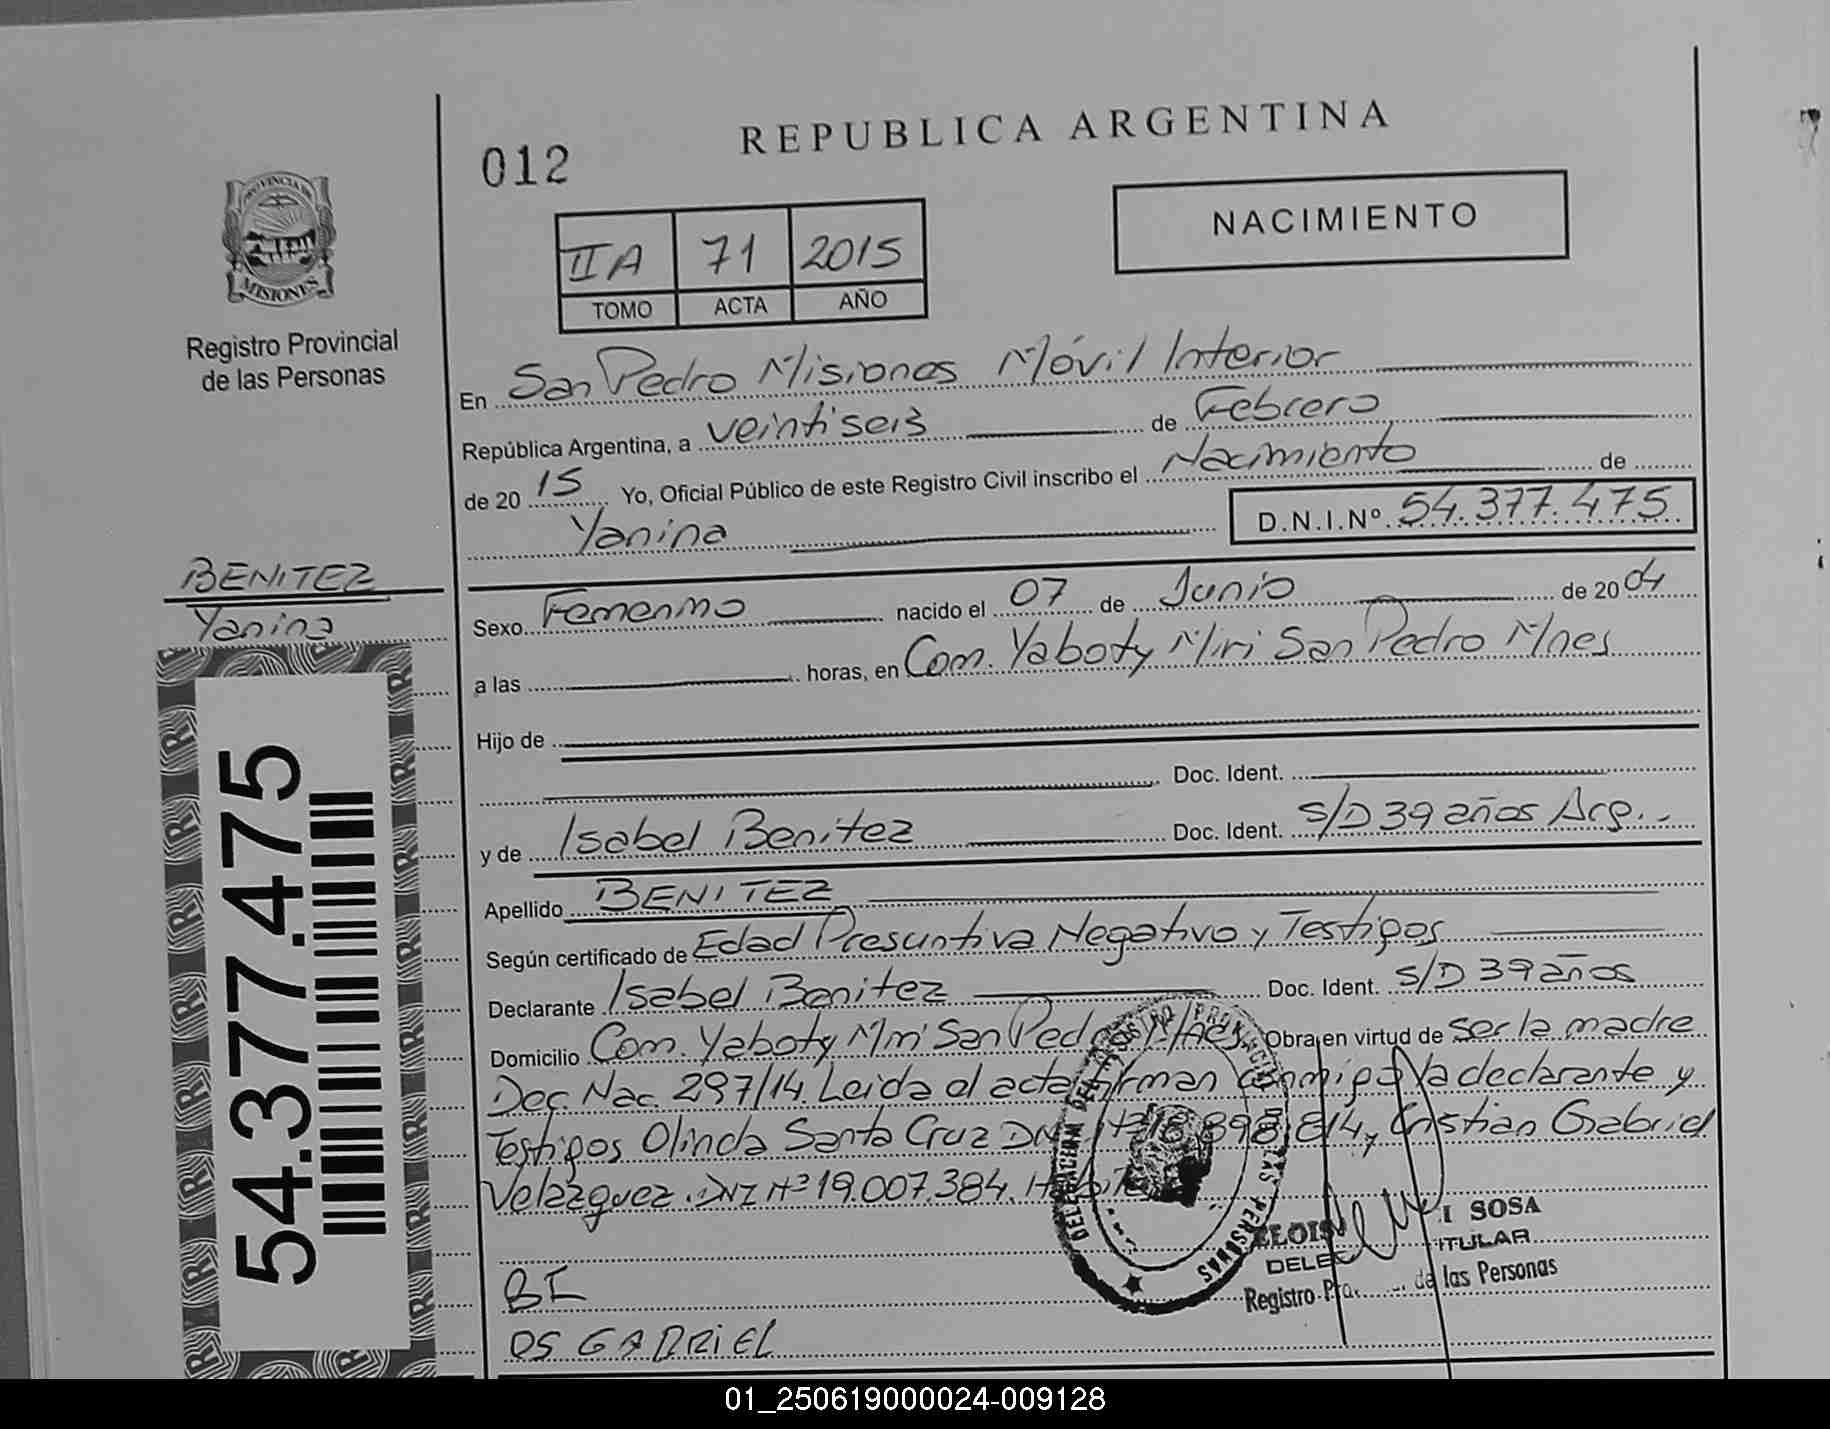 REPUBLICA ARGENTINA
012
NACIMIENTO
IIA 71 2015
TOMO ACTA AÑO
PROVINCIA DE
MISIONES
Registro Provincial
de las Personas
En San Pedro Misiones Móvil Interior
República Argentina, a veintiseis de Febrero
de 20 15 Yo, Oficial Público de este Registro Civil inscribo el Nacimiento de
Yanina D.N.I.Nº 54.377.475
BENITEZ
Yanina
54.377.475
Sexo Femenino nacido el 07 de Junio de 2004
a las horas, en Com. Yaboty Miri San Pedro Mnes
Hijo de
Doc. Ident.
y de Isabel Benitez Doc. Ident. S/D 39 años Arg.
Apellido BENITEZ
Según certificado de Edad Presuntiva Negativo y Testigos
Declarante Isabel Benitez Doc. Ident. S/D 39 años
Domicilio Com. Yaboty Miri San Pedro Mnes Obra en virtud de ser la madre
Dec. Nac. 297/14. Leida el acta firman conmigo la declarante y
Testigos Olinda Santa Cruz DNI Nº 18.898.814, Cristian Gabriel
Velazquez. DNI Nº 19.007.384.
DELEGACION DEL REGISTRO PROVINCIAL DE LAS PERSONAS
SOSA
TITULAR
Registro de las Personas
BI
DS GABRIEL
01_250619000024-009128